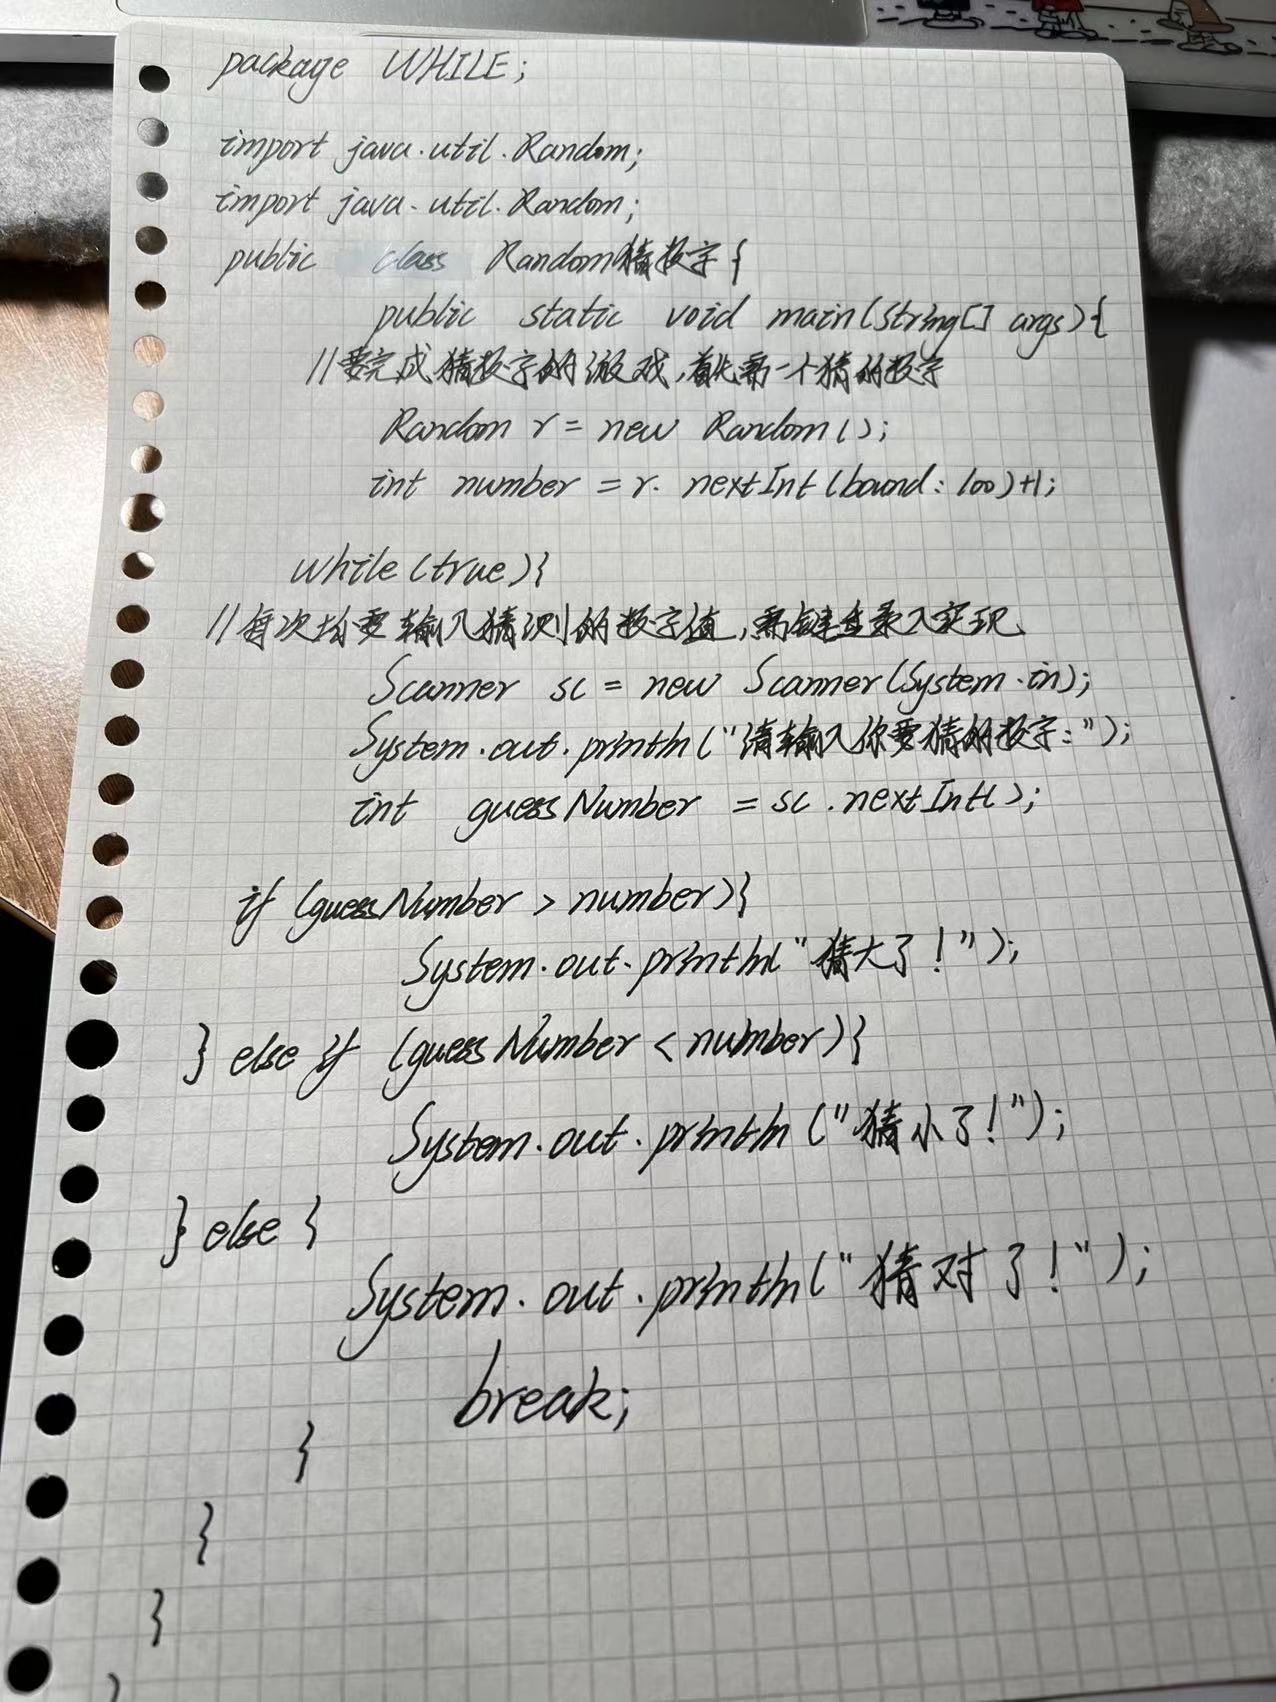 package WHILE;
import java.util.Random;
import java.util.Random;
public class Random猜数字{
public static void main(String[] args){
//要完成猜数字的游戏,首先需一个猜的数字
Random r = new Random();
int number = r. nextInt(bound: 100)+1;
while(true){
//每次均要输入猜测的数字值,需键盘录入实现
Scanner sc = new Scanner(System.in);
System.out.println("请输入你要猜的数字:");
int guessNumber = sc.nextInt();
if (guessNumber > number){
System.out.println("猜大了!");
} else if (guessNumber < number){
System.out.println("猜小了!");
} else {
System.out.println("猜对了!");
break;
}
}
}
}